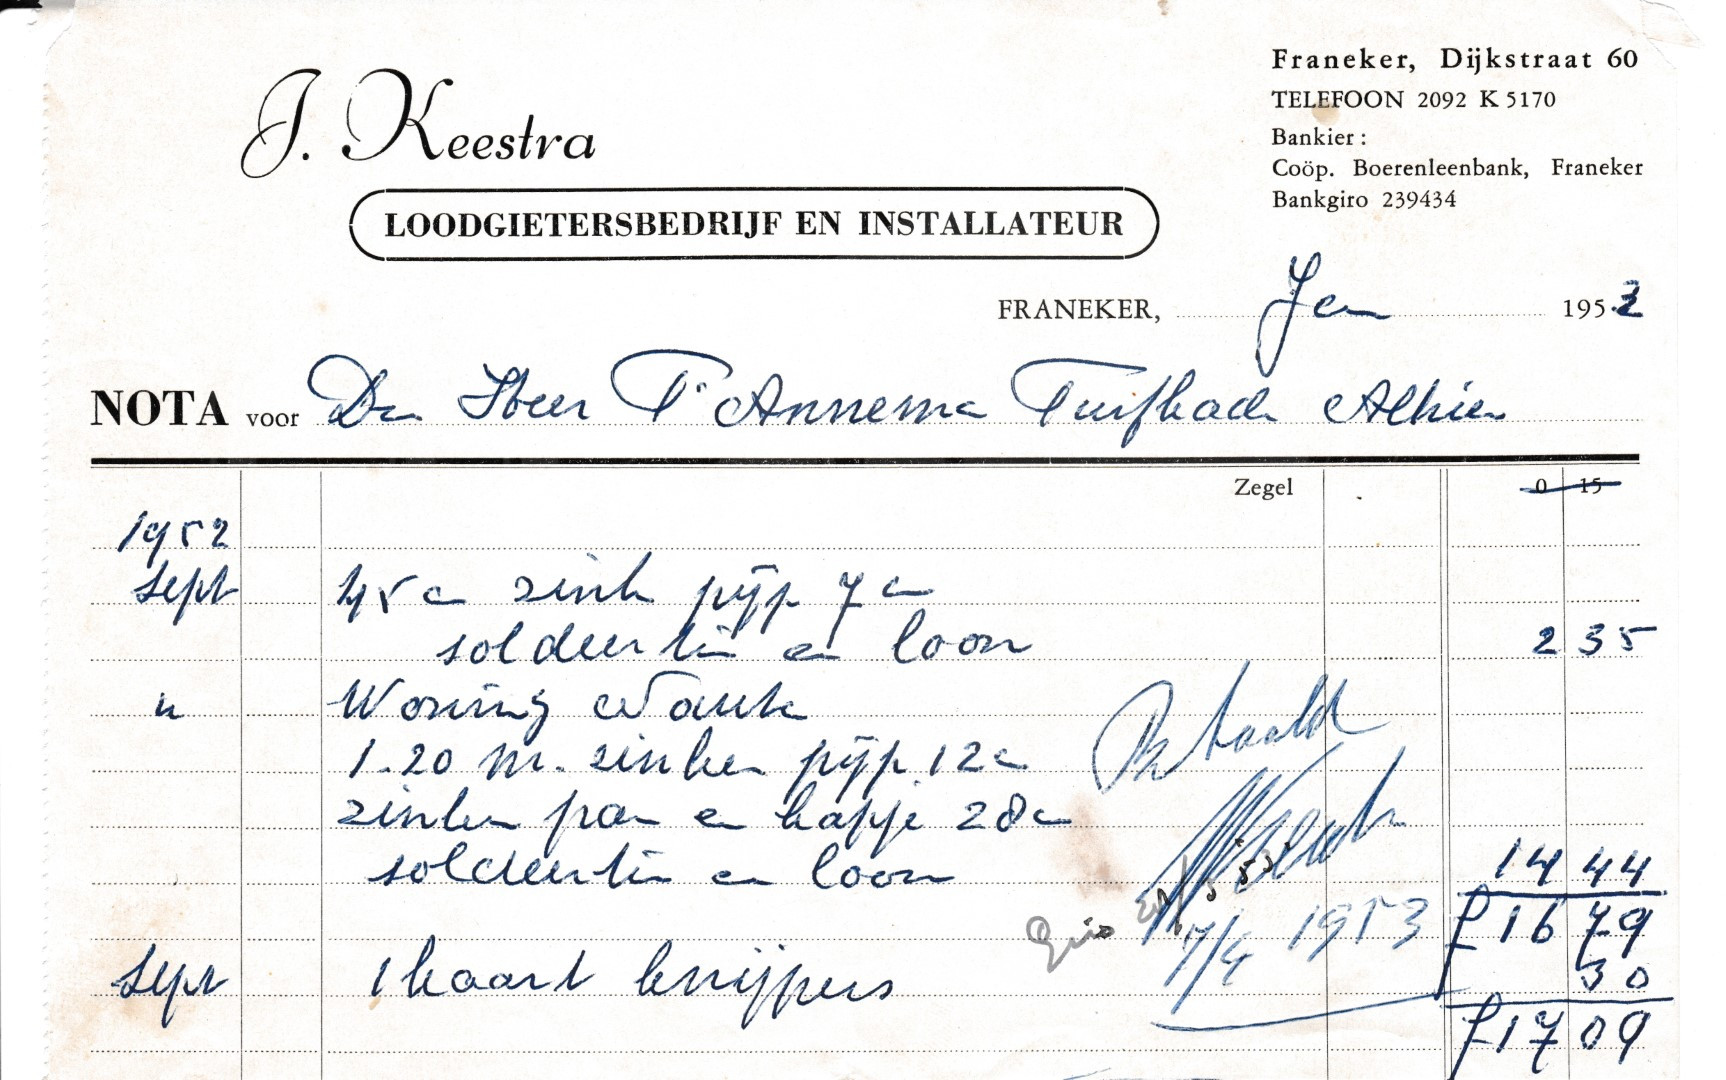 J. Keestra
LOODGIETERSBEDRIJF EN INSTALLATEUR
Franeker, Dijkstraat 60
TELEFOON 2092 K 5170
Bankier:
Coöp. Boerenleenbank, Franeker
Bankgiro 239434
FRANEKER, Jan 1953
NOTA voor Den Heer T Annema Turfkade Alhier
Zegel 0 15
1952
Sept 45 c zink pijp 7 c
soldeertin en loon 2 35
" Woning
1.20 m. zinken pijp 12 c
zinken pan en kapje 28 c
soldeertin en loon 14 44
Betaald
7/4 1953
Giro
f 16 79
Sept 1 kaart knijpers 30
f 17 09